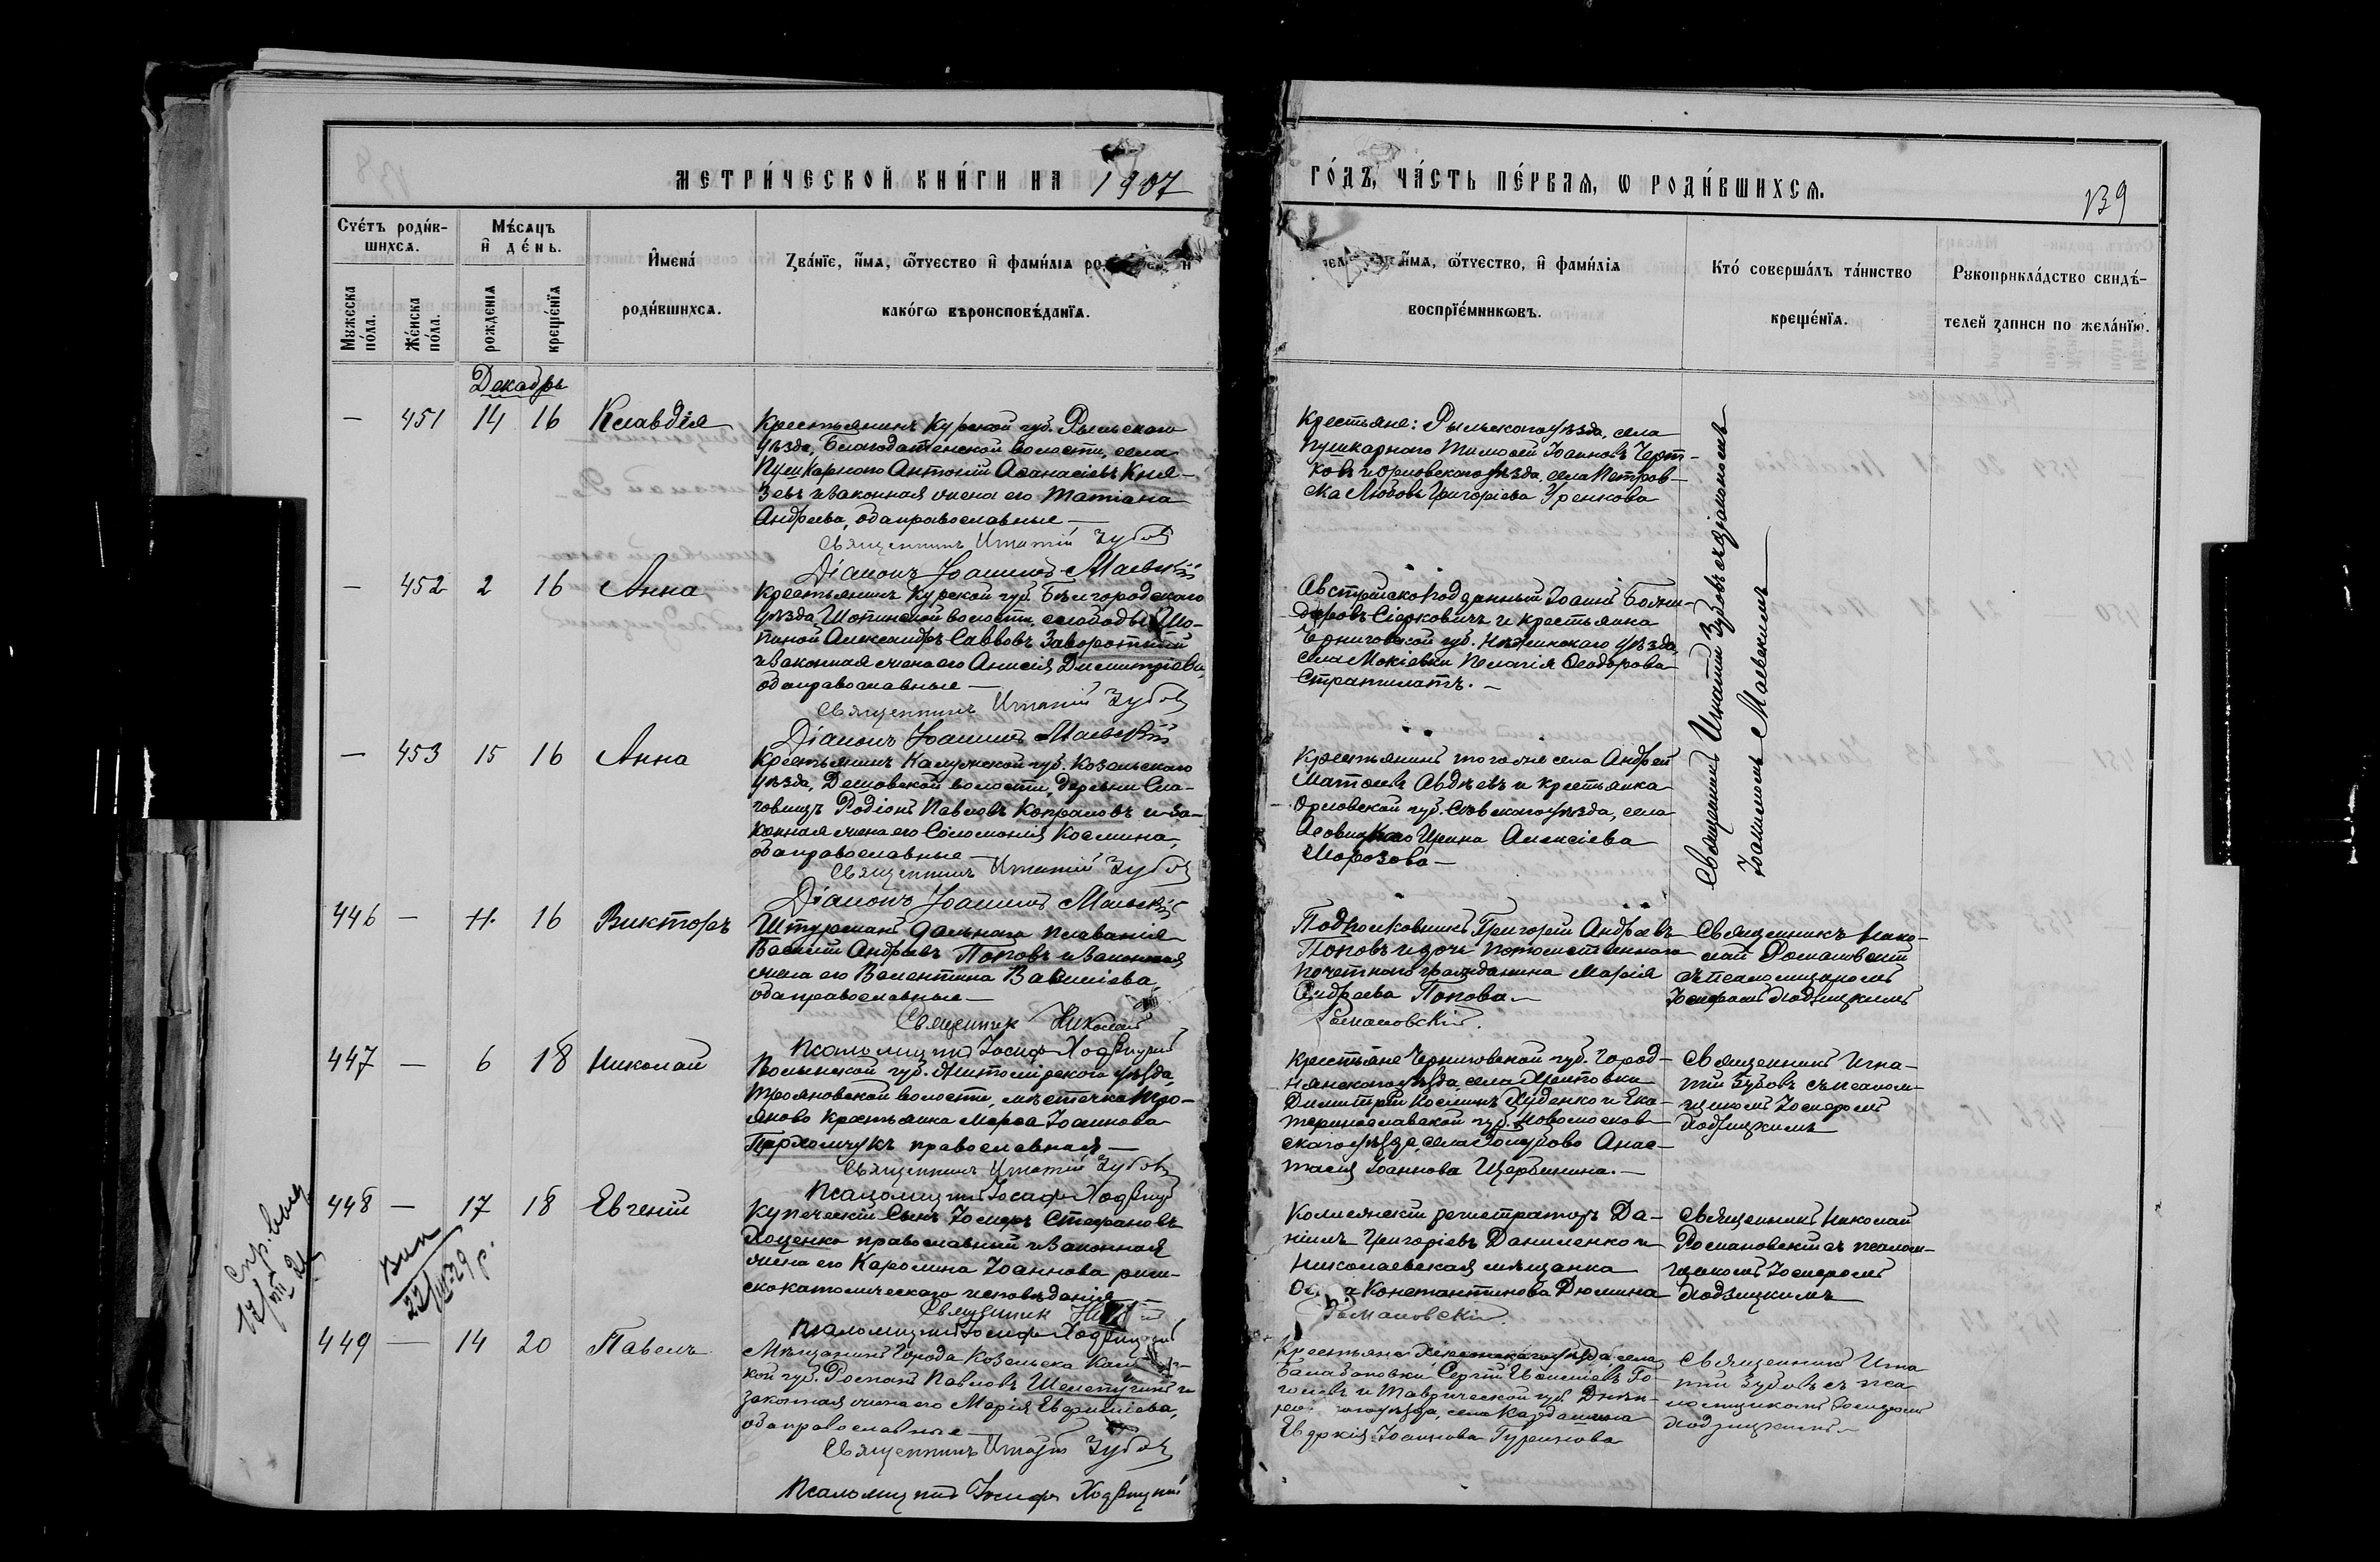 МЕТРИ́ЧЕСКОЙ КНИ́ГИ НА 1907
ГО́ДЪ, ЧА́СТЬ ПЕ́РВАѦ, Ѡ РОДИ́ВШИХСѦ.
139
Счéтъ роди́в-
шихсѧ.
Мѣ́сѧцъ
и҆ де́нь.
И҆мена́
роди́вшихсѧ.
Зва́нїе, и҆́мѧ, ѻ҆́тчество и҆ фами́лїѧ
како́гѡ вѣроисповѣ́данїѧ.
и҆́мѧ, ѻ҆́тчество, и҆ фами́лїѧ
воспрїе́мникѡвъ.
Кто́ соверша́лъ та́инство
креще́нїѧ.
Рꙋкоприкла́дство свидѣ́-
телей записи по жела́нїю.
Мꙋжеска
по́ла.
Же́нска
по́ла.
рожденїѧ
креще́нїѧ
Декабрь
— 451 14 16 Клавдія
Крестьянинъ Курской губ. Рыльскаго
уѣзда, Благодатенской волости, села
Пушкарнаго Антоній Аѳанасіевъ Кня-
зевъ и законная жена его Татіана
Андреева, оба православные —
Священникъ Игнатій Зубовъ
Діаконъ Іоанникій Маевскій
Крестьяне: Рыльскаго уѣзда, села
Пушкарнаго Тимоѳей Іоанновъ Черт-
ковъ и Орловскаго уѣзда, села Петров-
ска Любовь Григоріева Уренкова
Священникъ Игнатій Зубовъ съ діакономъ
Іоанникіемъ Маевскимъ
— 452 2 16 Анна
Крестьянинъ Курской губ. Бѣлгородскаго
уѣзда, Шопинской волости, слободы Шо-
пиной Александръ Савовъ Заворотній
и законная жена его Анисія Димитріева,
оба православные —
Священникъ Игнатій Зубовъ
Діаконъ Іоанникій Маевскій
Австрійско подданный Іоаннъ
Сіарковичъ и крестьянка
Черниговской губ. Нѣжинскаго уѣзда,
села Мокіевки Пелагія Ѳеодорова
Стратилатъ. —
— 453 15 16 Анна
Крестьянинъ Калужской губ. Козельскаго
уѣзда, Дешовской волости, деревни Сла-
говищъ Родіонъ Павловъ Копраловъ и за-
конная жена его Соломонія Космина,
оба православные —
Священникъ Игнатій Зубовъ
Діаконъ Іоанникій Маевскій
Крестьянинъ того же села Андрей
Матѳеевъ Авдѣевъ и крестьянка
Орловской губ. Сѣвскаго уѣзда, села
Ирина Алексіева
Морозова —
446 — 11. 16 Викторъ
Штурманъ дальняго плаванія
Василій Андреевъ Поповъ и законная
жена его Валентина Василіева,
оба православные —
Священник Николай
Романовскій.
Псаломщикъ Іосифъ Ходзицкій
Подполковникъ Григорій Андреевъ
Поповъ и дочь потомственнаго
почетнаго гражданина Марія
Андреева Попова. —
Священникъ Нико-
лай Романовскій
съ псаломщикомъ
Іосифомъ Ходзицкимъ
447 — 6 18 Николай
Волынской губ. Житомірскаго уѣзда,
Трояновской волости, мѣстечка Тро-
яново крестьянка Марѳа Іоаннова
Пархомчукъ православная —
Священникъ Игнатій Зубовъ
Псаломщикъ Іосифъ Ходзицкій
Крестьяне Черниговской губ. Город-
нянскаго уѣзда, села
Димитрій Косминъ Худенко и Ека-
теринославской губ. Новомосков-
скаго уѣзда, села Анас-
тасія Іоаннова Щербинина. —
Священникъ Игна-
тій Зубовъ съ псалом-
щикомъ Іосифомъ
Ходзицкимъ
448 — 17 18 Евгеній
Купеческій сынъ Іосифъ Стефановъ
Хоценко православный и законная
жена его Каролина Іоаннова рим-
скокатолическаго исповѣданія
Священник
Романовскій.
Псаломщикъ Іосифъ Ходзицкій
Коллежскій регистраторъ Да-
ніилъ Григоріевъ Даниленко и
Николаевская мѣщанка
Константинова Дюмина
Священникъ Николай
Романовскій съ псалом-
щикомъ Іосифомъ
Ходзицкимъ
Спр. выд.
12/VIII 24
Вип
22/VII 29 р.
449 — 14 20 Павелъ
Мѣщанинъ города Козельска
кой губ. Романъ Павловъ Шелепугинъ и
законная жена его Марія Евфиміева,
оба православные —
Священникъ Игнатій Зубовъ
Псаломщикъ Іосифъ Ходзицкій
Крестьяне Херсонскаго уѣзда села
Балабановки Сергій Евфиміевъ Го-
и Таврической губ. Днѣп-
уѣзда, села Кардашинка
Евдокія Іоаннова Гуренкова
Священникъ Игна
тій Зубовъ съ пса
ломщикомъ Іосифомъ
Ходзицкимъ